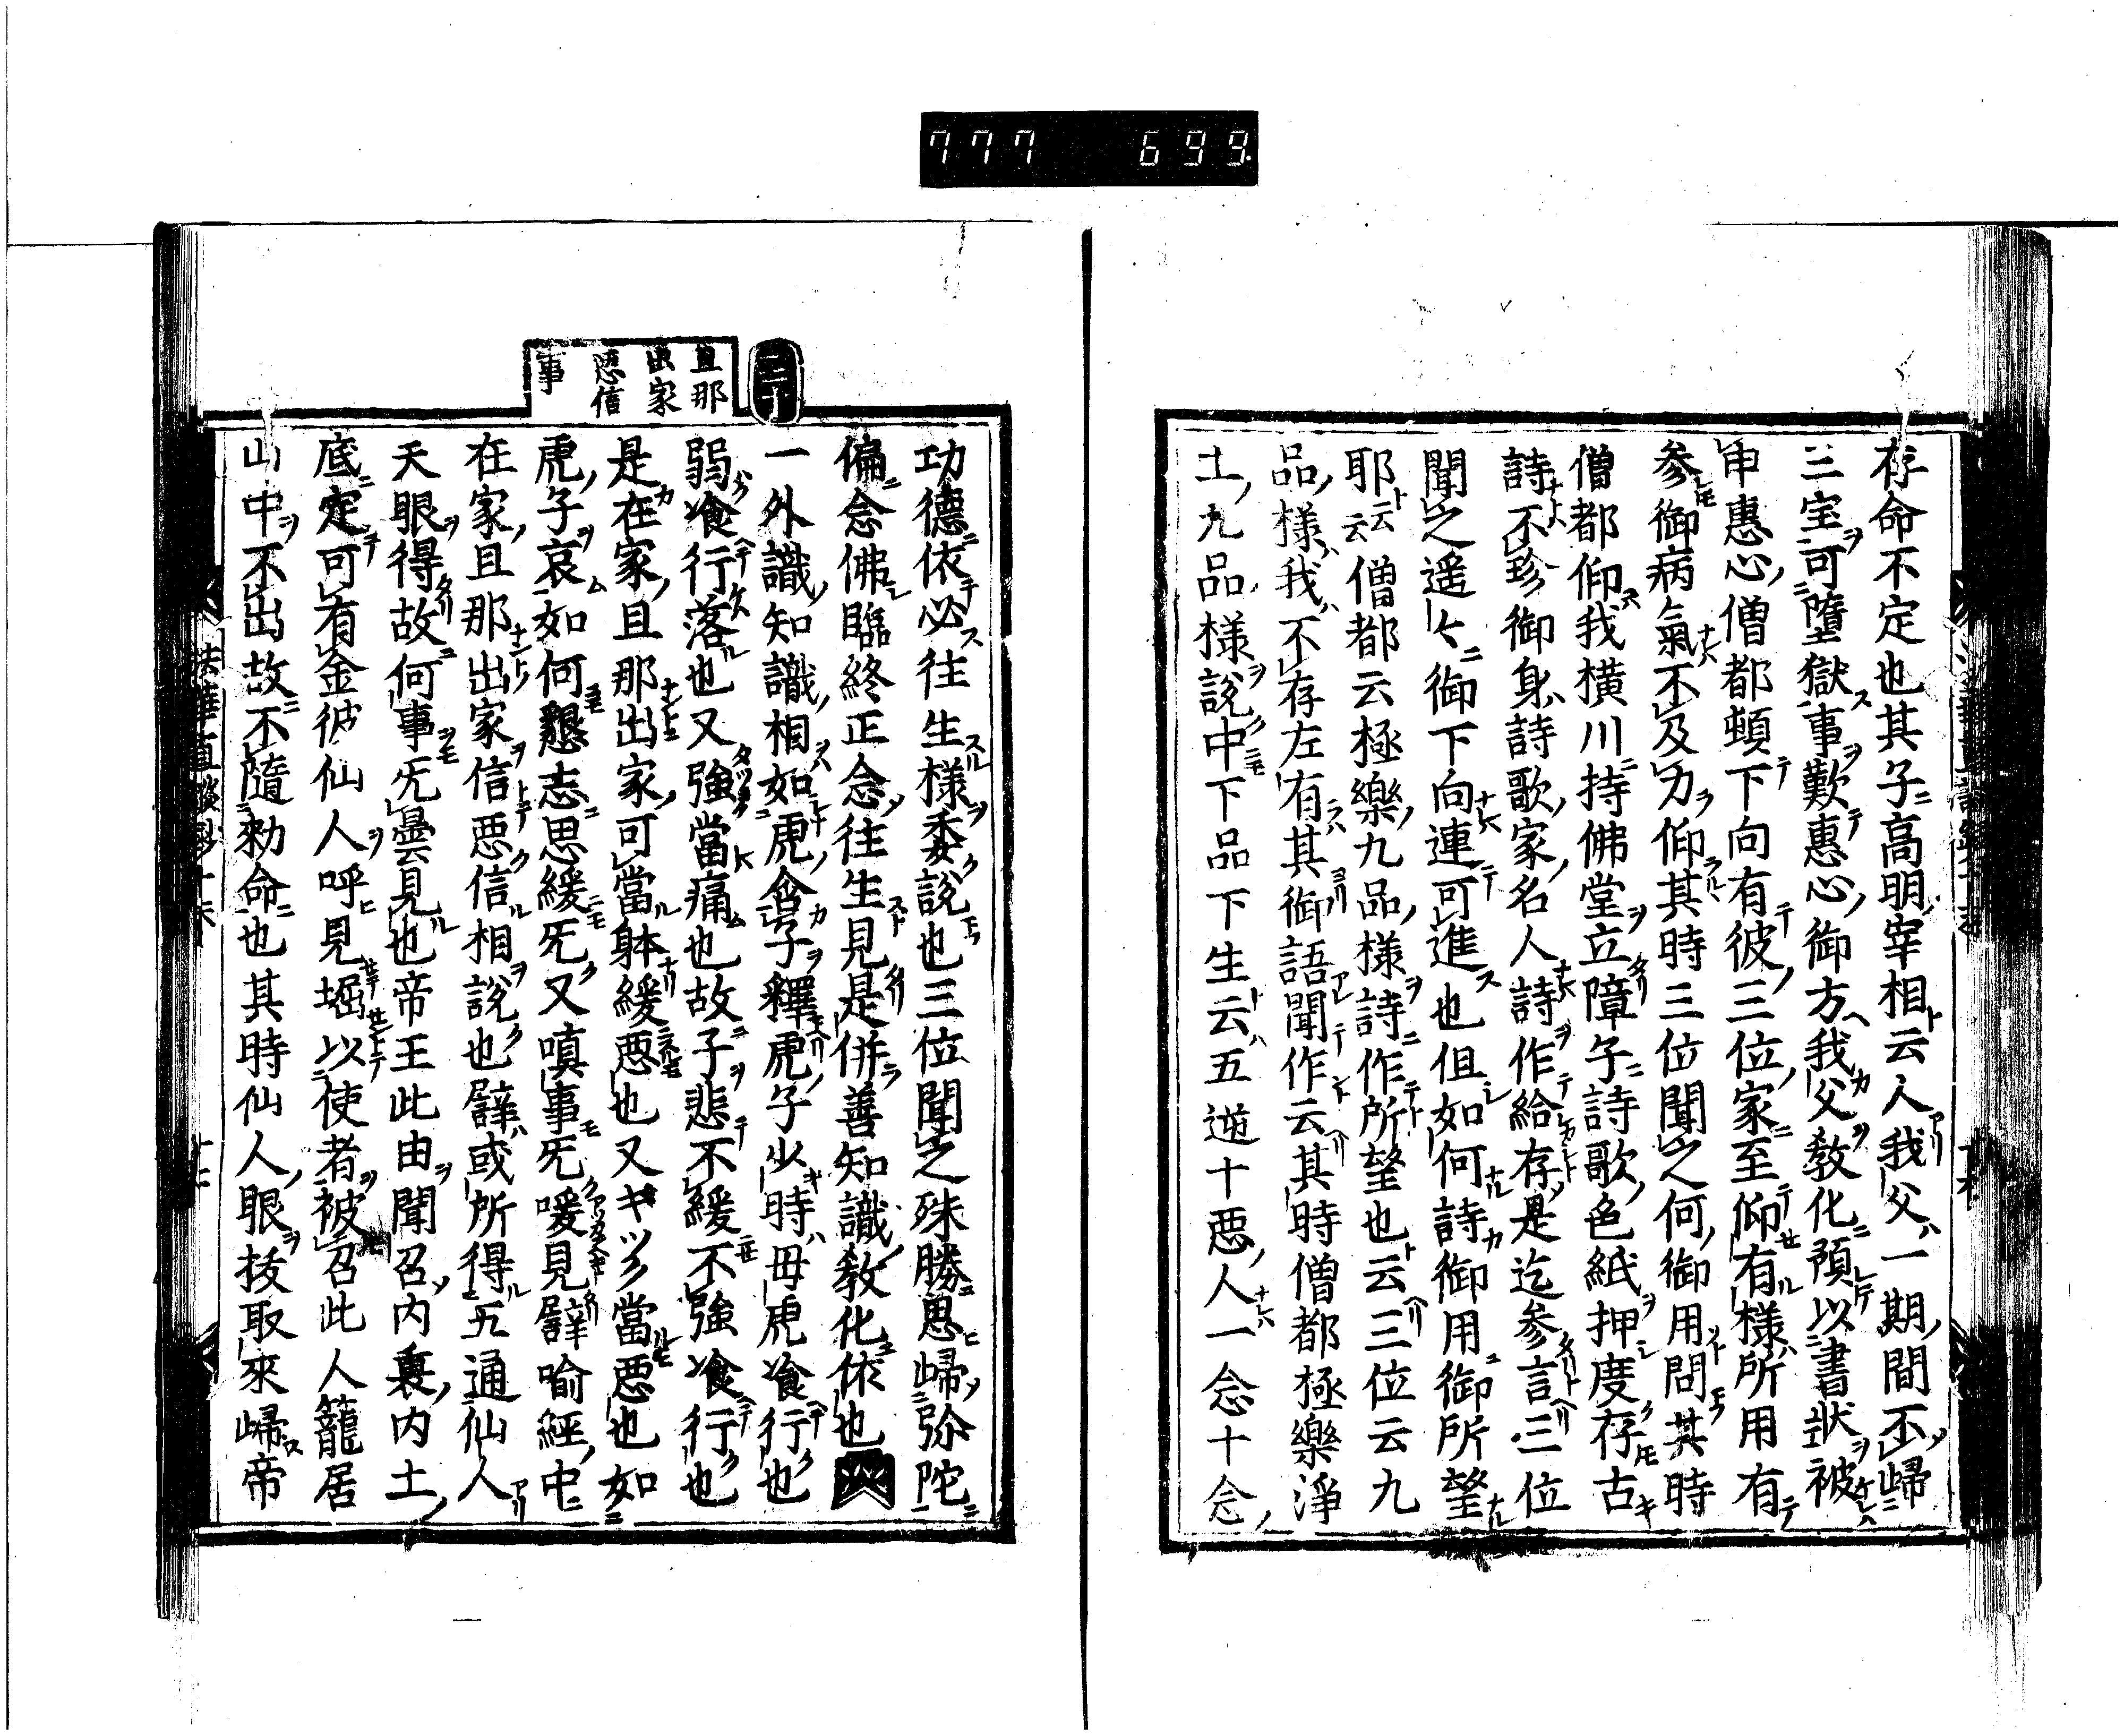 777 699.
存命不定也其子高明宰相云人我父一期間不歸
三宝可墮獄事歎惠心御方我父教化預以書狀被
申惠心僧都頓下向有彼三位家至仰有樣所用有
参御病氣不及力仰其時三位聞之何御用問其時
僧都仰我横川持佛堂立障子詩歌色紙押度存古
詩不珍御身詩歌家名人詩作給存是迄参言三位
聞之遥々御下向連可進也但如何詩御用御所望
耶云云僧都云極樂九品樣詩作所望也云三位云九
品樣我不存左有其御語聞作云其時僧都極樂淨
土九品樣說中下品下生云五逆十悪人一念十念
旦那
出家
悪信
事
功德依必往生樣委說也三位聞之殊勝思歸弥陀
偏念佛臨終正念往生見是併善知識教化依也
一外識知識相如虎含子釋虎子少時毋虎飡行也
弱飡行落也又強當痛也故子悲不緩不強飡行也
是在家且那出家可當躰緩悪也又キツク當悪也如
虎子哀如何懇志思緩旡又嗔事旡嗳見譬喻經中
在家且那出家信悪信相說也譬或所得五通仙人
天眼得故何事旡曇見也帝王此由聞召内裏内土
底定可有金彼仙人呼見堀以使者被召此人籠居
山中不出故不隨勑命也其時仙人眼抜取來歸帝
法華直談鈔十末